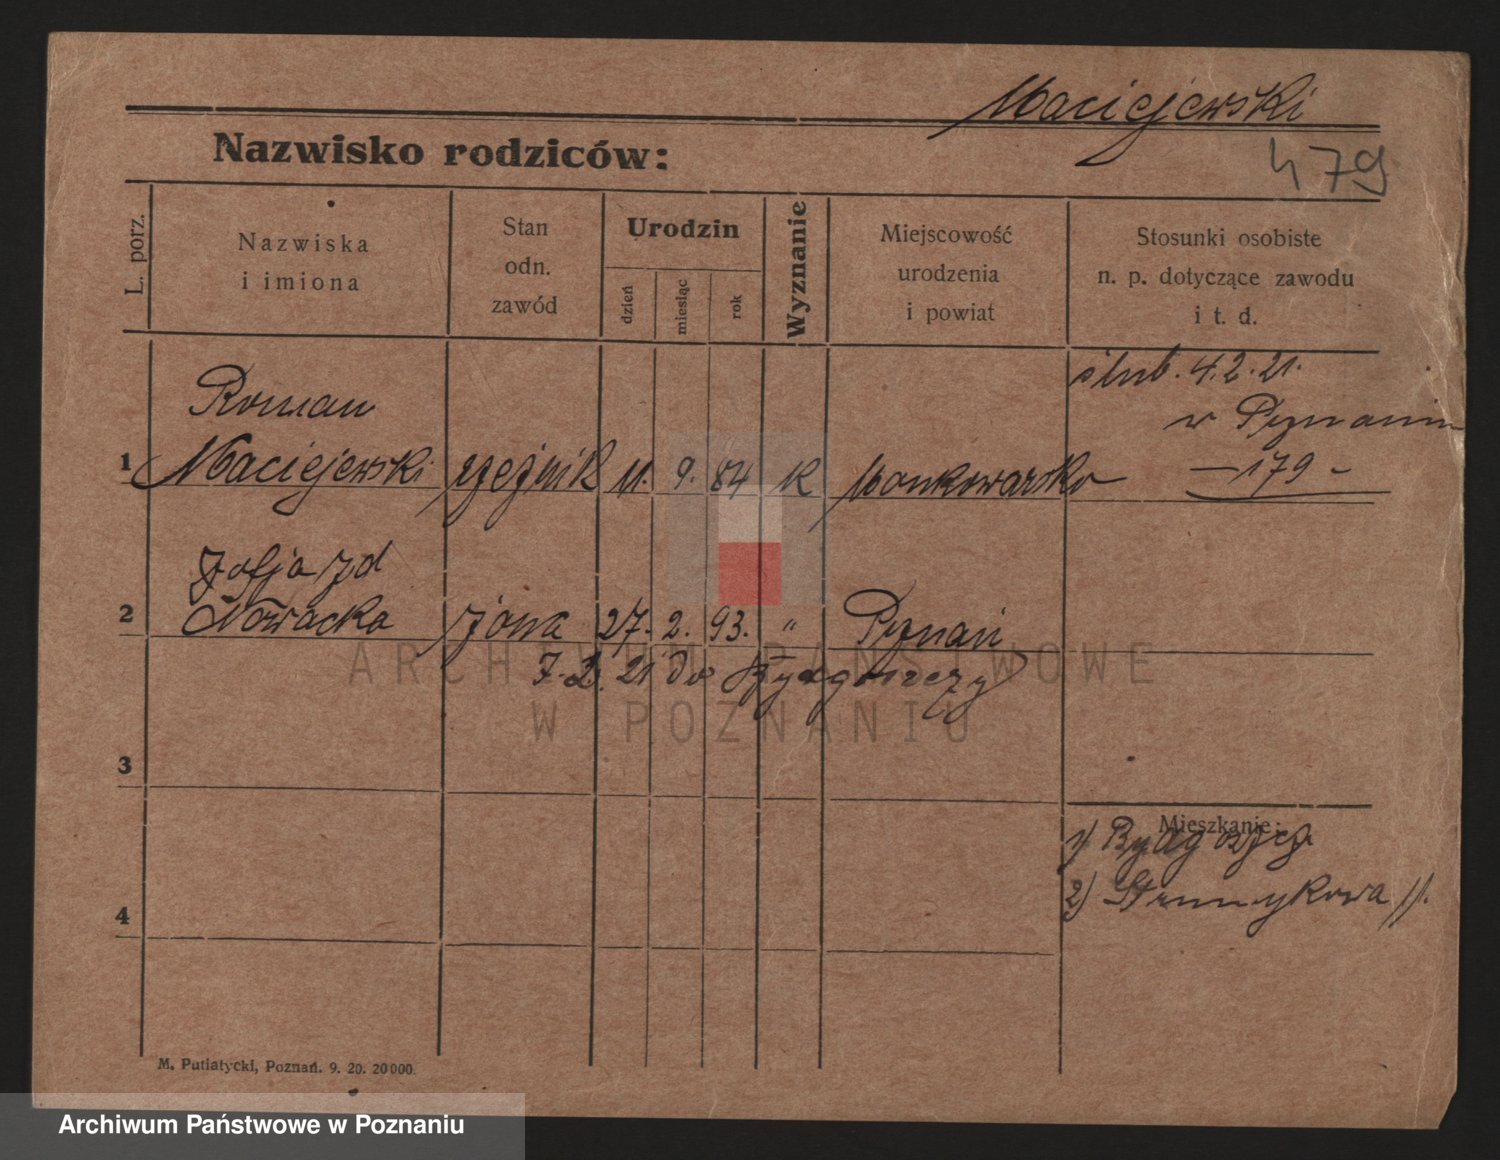 Maciejewski
479
Nazwisko rodziców:
L. porz.
Nazwiska
i imiona
Stan
odn.
zawód
Urodzin
dzień
miesiąc
rok
Wyznanie
Miejscowość
urodzenia
i powiat
Stosunki osobiste
n. p. dotyczące zawodu
i t. d.
ślub. 4.2.21.
w Poznaniu
— 179 —
1 Roman
Maciejewski rzeźnik 11. 9. 84 K
2 Zofja zd
Nowacka żona 27. 2. 93. " Poznań
7.2.21 do Bydgoszczy
3
4
Mieszkanie:
1) Bydgoszcz
2)
M. Putiatycki, Poznań. 9. 20. 20000.
ARCHIWUM PAŃSTWOWE
W POZNANIU
Archiwum Państwowe w Poznaniu